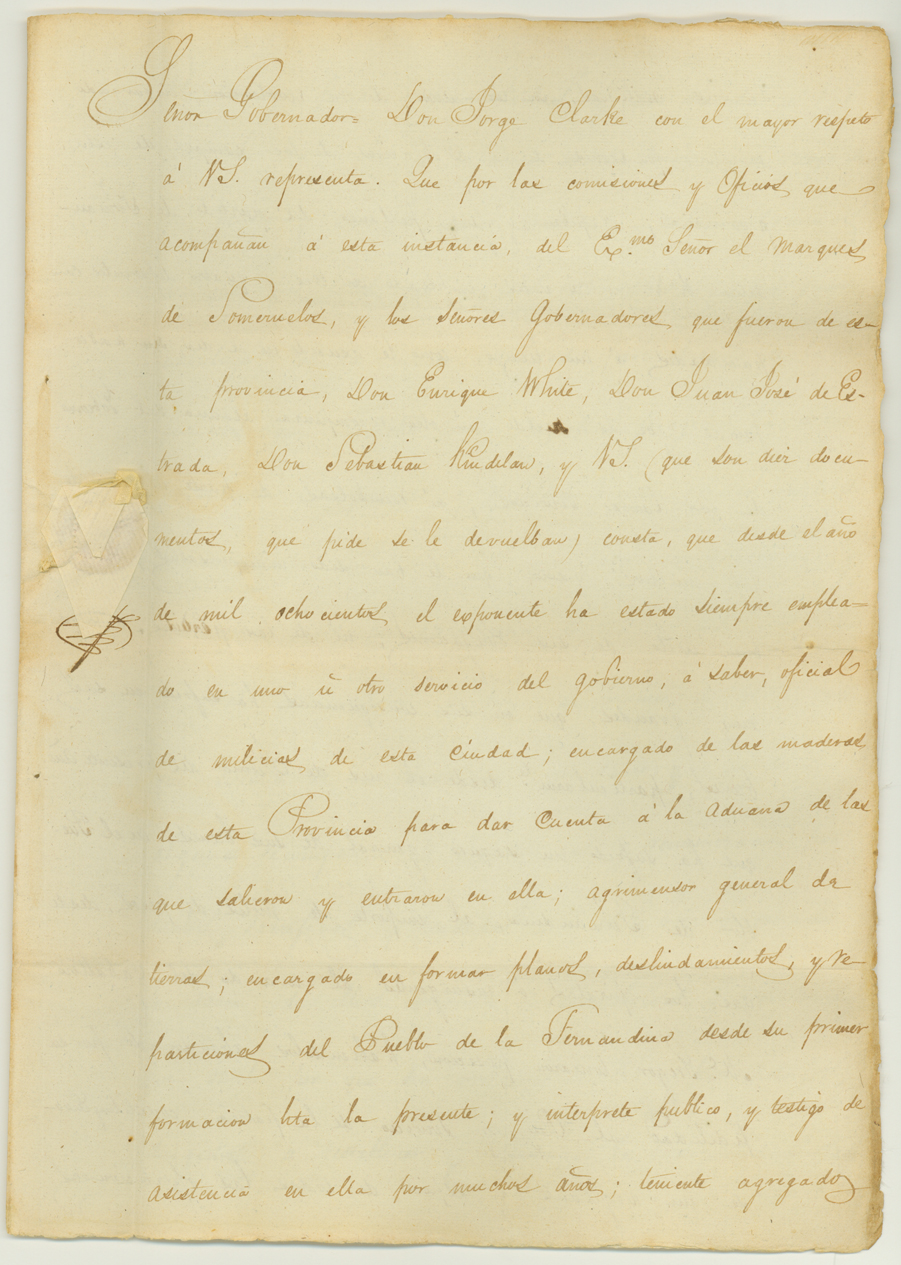 Señor Gobernador= Don Jorge Clarke con el mayor respeto
á V.S. representa. Que por las comisiones y Oficios que
acompañan á esta instancia, del Exmo. Señor el Marques
de Someruelos, y los Señores Gobernadores que fueron de es-
ta provincia, Don Enrique White, Don Juan José de Es-
trada, Don Sebastian Kindelan, y V.S. (que son diez docu-
mentos, que pide se le devuelban) consta, que desde el año
de mil ochocientos el exponente ha estado siempre emplea=
do en uno ú otro servicio del gobierno, á saber, oficial
de milicias de esta Ciudad; encargado de las maderas
de esta Provincia para dar Cuenta á la Aduana de las
que salieron y entraron en ella; agrimensor general de
tierras; encargado en formar planos, deslindamientos, y re
particiones del Pueblo de la Fernandina desde su primer
formacion hta la presente; y interprete publico, y testigo de
asistencia en ella por muchos años; teniente agregado